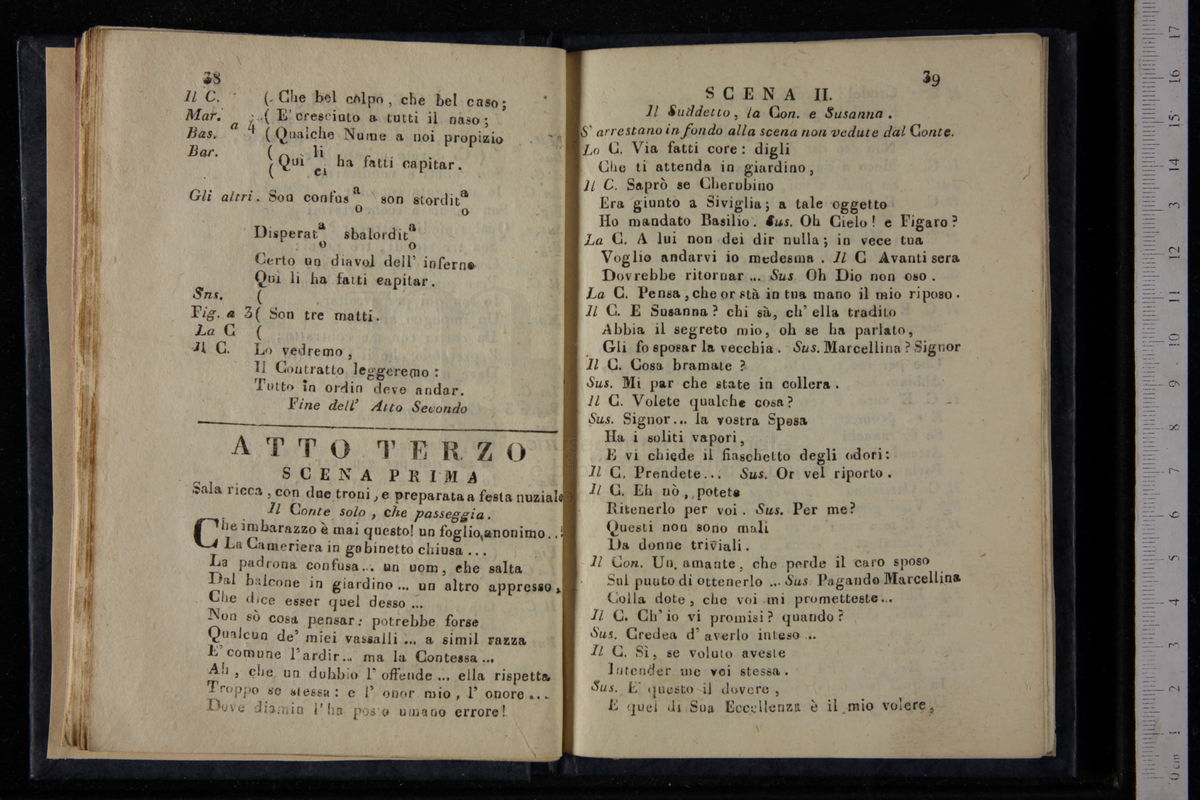 38
Il C. (Che bel colpo, che bel caso;
Mar. ( E' cresciuto a tutti il naso;
Bas. a 4 (Qualche Nume a noi propizio
Bar. ( Qui li ha fatti capitar.
ci
Gli altri. Son confus a son stordit a
o o
Disperat a sbalordit a
o o
Certo un diavol dell' inferno
Qui li ha fatti capitar.
Sns. (
Fig. a 3( Son tre matti.
La C (
Il C. Lo vedremo,
Il Contratto leggeremo:
Tutto in ordin deve andar.
Fine dell' Atto Secondo
ATTO TERZO
SCENA PRIMA
Sala ricca, con due troni, e preparata a festa nuziale
Il Conte solo, che passeggia.
Che imbarazzo è mai questo! un foglio anonimo..!
La Cameriera in gabinetto chiusa...
La padrona confusa... un uom, che salta
Dal balcone in giardino... un altro appresso,
Che dice esser quel desso...
Non sò cosa pensar: potrebbe forse
Qualcun de' miei vassalli... a simil razza
E' comune l'ardir... ma la Contessa...
Ah, che un dubbio l' offende... ella rispetta
Troppo se stessa: e l' onor mio, l' onore...
Dove diamin l'ha posto umano errore!
39
SCENA II.
Il Suddetto, la Con. e Susanna.
S' arrestano in fondo alla scena non vedute dal Conte.
Lo C. Via fatti core: digli
Che ti attenda in giardino,
Il C. Saprò se Cherubino
Era giunto a Siviglia; a tale oggetto
Ho mandato Basilio. Sus. Oh Cielo! e Figaro?
La C. A lui non dei dir nulla; in vece tua
Voglio andarvi io medesma. Il C Avanti sera
Dovrebbe ritornar... Sus Oh Dio non oso.
La C. Pensa, che or stà in tua mano il mio riposo.
Il C. E Susanna? chi sà, ch' ella tradito
Abbia il segreto mio, oh se ha parlato,
Gli fo sposar la vecchia. Sus. Marcellina? Signor
Il C. Cosa bramate?
Sus. Mi par che state in collera.
Il C. Volete qualche cosa?
Sus. Signor... la vostra Sposa
Ha i soliti vapori,
E vi chiede il fiaschetto degli odori:
Il C. Prendete... Sus. Or vel riporto.
Il C. Eh nò, potete
Ritenerlo per voi. Sus. Per me?
Questi non sono mali
Da donne triviali.
Il Con. Un amante, che perde il caro sposo
Sul punto di ottenerlo... Sus Pagando Marcellina
Colla dote, che voi mi prometteste...
Il C. Ch' io vi promisi? quando?
Sus. Credea d' averlo inteso...
Il C. Sì, se voluto aveste
Intender me voi stessa.
Sus. E' questo il dovere,
E quel di Sua Eccellenza è il mio volere,
0 cm 1 2 3 4 5 6 7 8 9 10 11 12 13 14 15 16 17